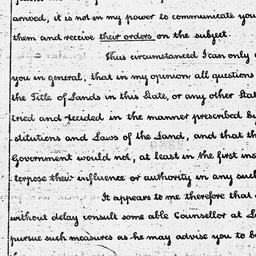 arrived, it is not in my power to communicate you
them and receive their orders on the subject.
Thus circumstanced I can only
you in general, that in my opinion all questions
the Title of Lands in this State, or any other Stat
tried and decided in the manner prescribed by
stitutions and Laws of the Land, and that th
Government would not, at least in the first ins
terpose their influence or authority in any such
It appears to me therefore that
without delay consult some able Counsellor at L
pursue such measures as he may advise you to b